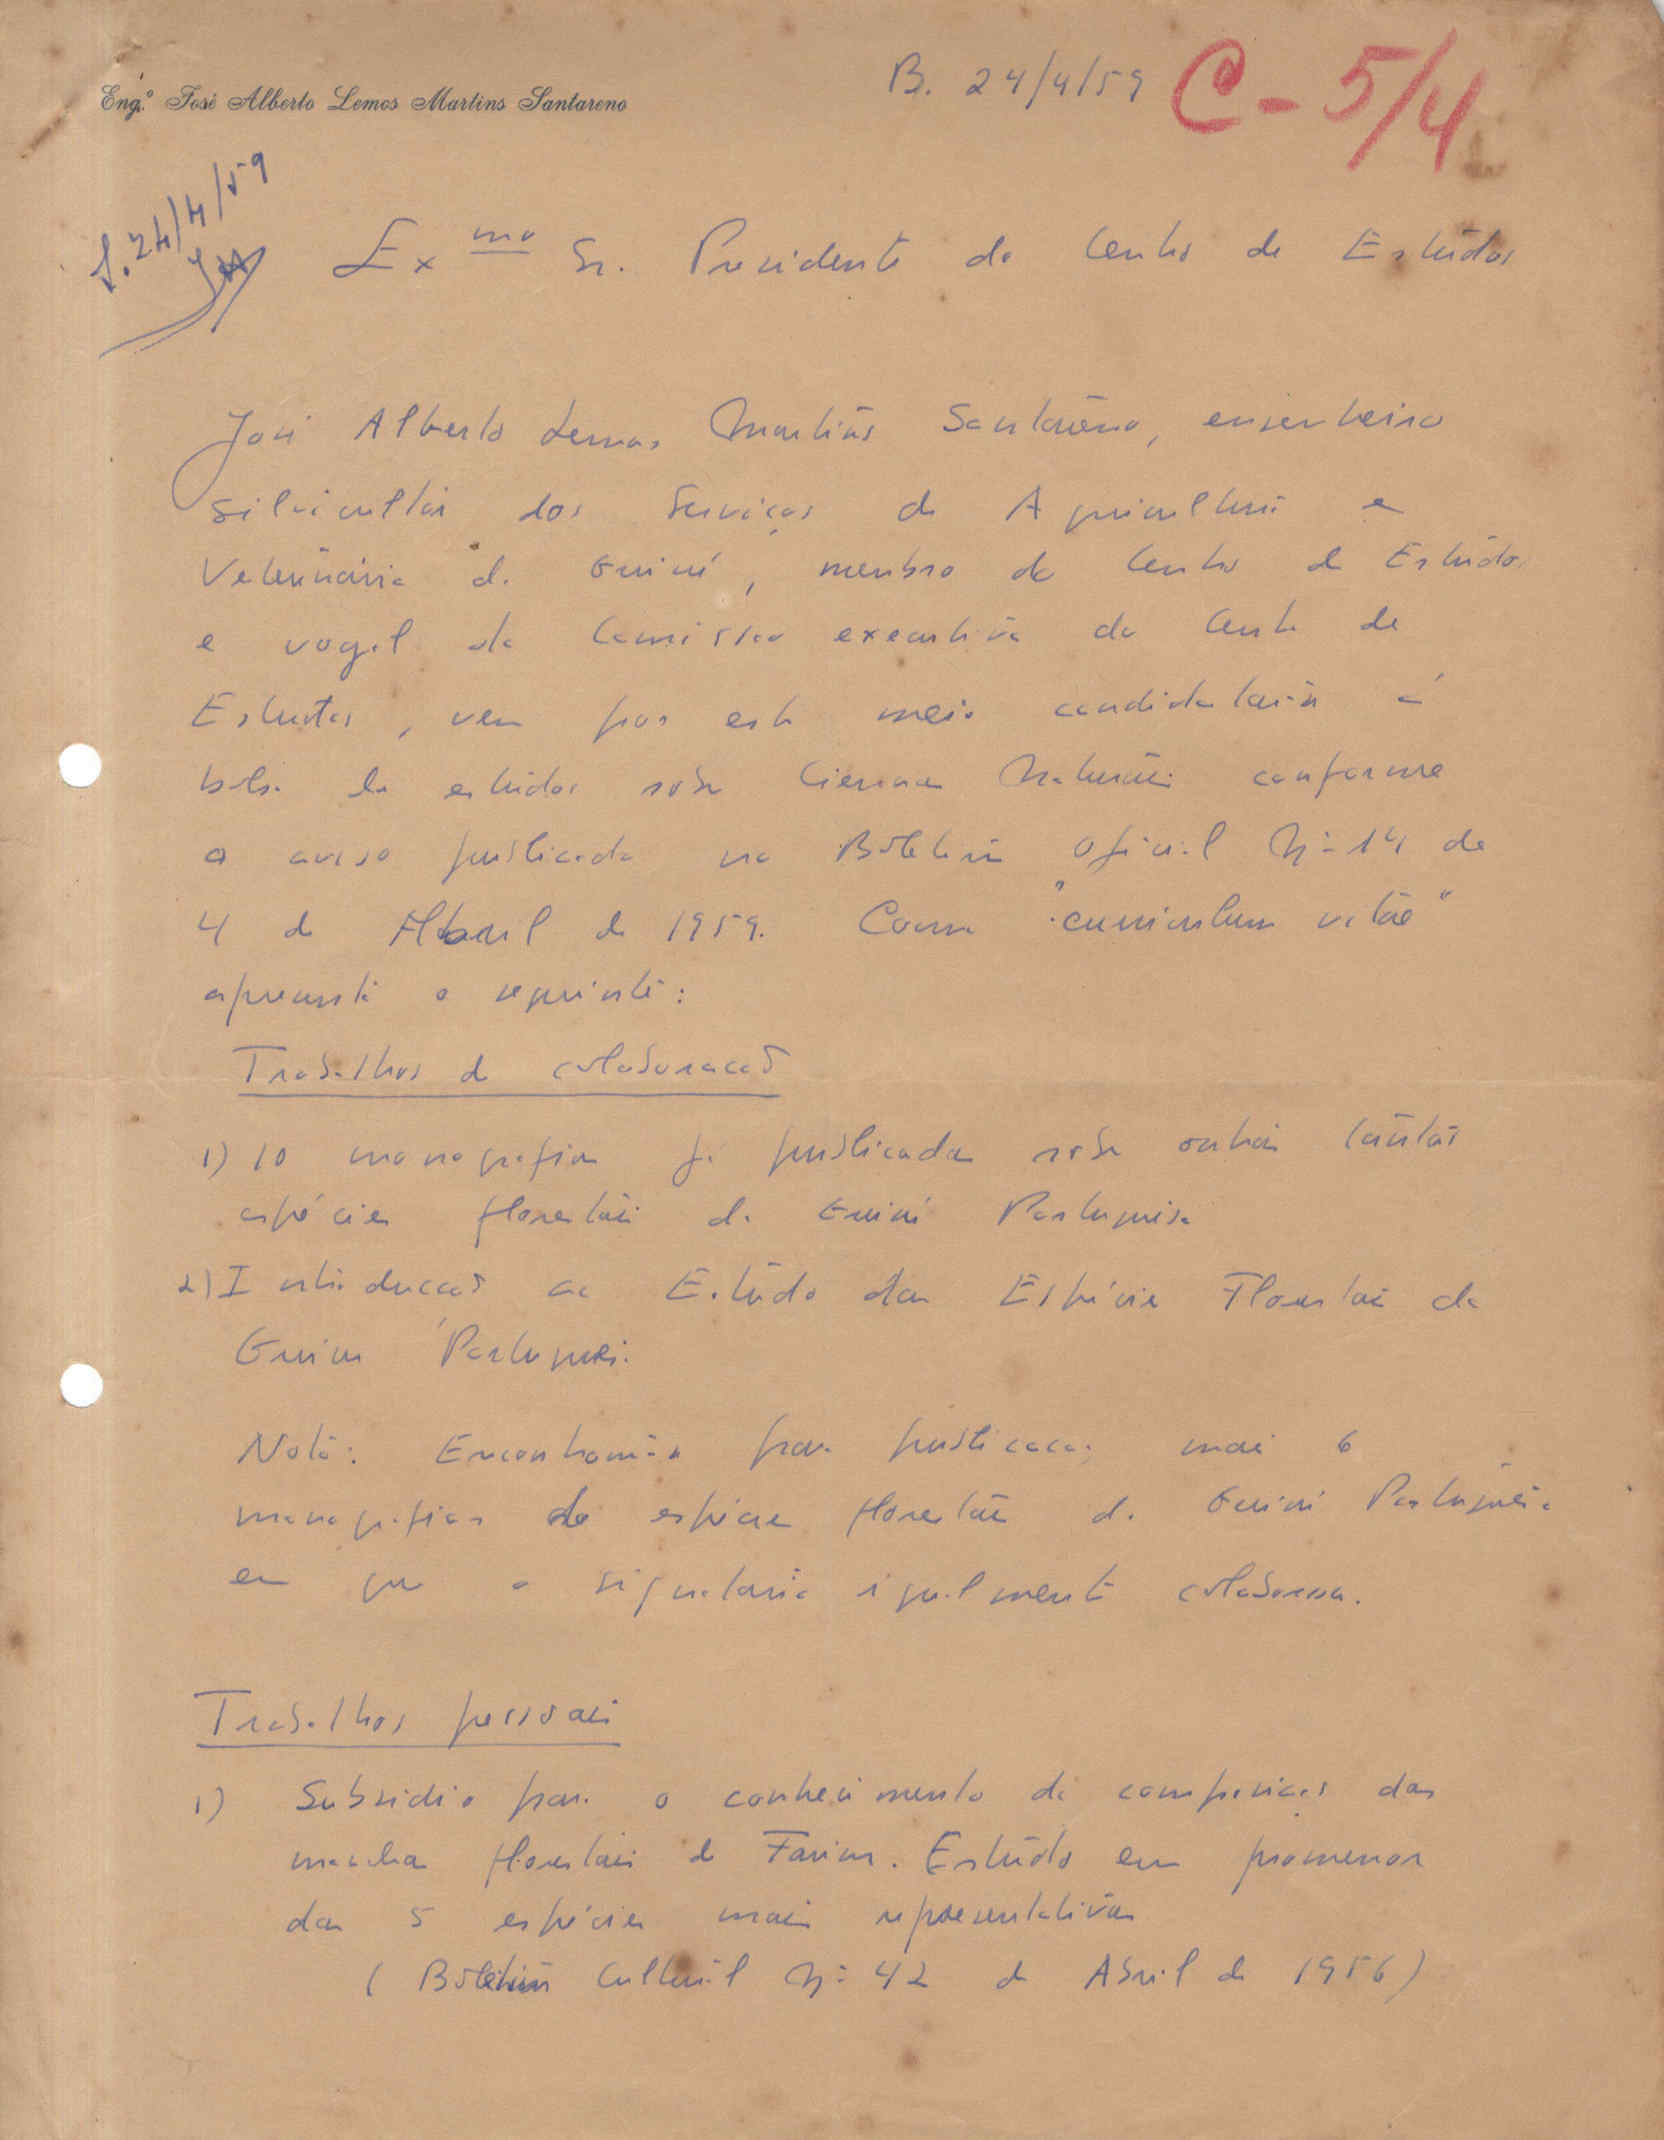 Eng.º José Alberto Lemos Martins Santareno
B. 24/4/59
C-5/4
24/4/59
Ex mo Sr. Presidente do Centro de Estudos
José Alberto Lemos Martins Santareno, engenheiro
silvicultor dos Serviços de Agricultura e
Veterinária da Guiné, membro do Centro de Estudos
e vogal da Comissão executiva do Centro de
Estudos, vem por este meio candidatar-se á
bolsa de estudos sobre Ciencias Naturais conforme
o aviso publicado no Boletim Oficial Nº 14 de
4 de Abril de 1959. Como "curriculum vitae"
apresenta o seguinte:
Trabalhos de colaboração
1) 10 monografias já publicadas sobre outras tantas
espécies florestais da Guiné Portuguesa
2) Introdução ao Estudo das Espécies Florestais da
Guiné Portuguesa.
Nota: Encontram-se para publicação mais 6
monografias de espécies florestais da Guiné Portuguesa
em que o signatário igualmente colaborou.
Trabalhos pessoais
1) Subsidio para o conhecimento da composição das
manchas florestais de Farim. Estudo em promenor
das 5 espécies mais representativas
(Boletim Cultural Nº 42 de Abril de 1956)